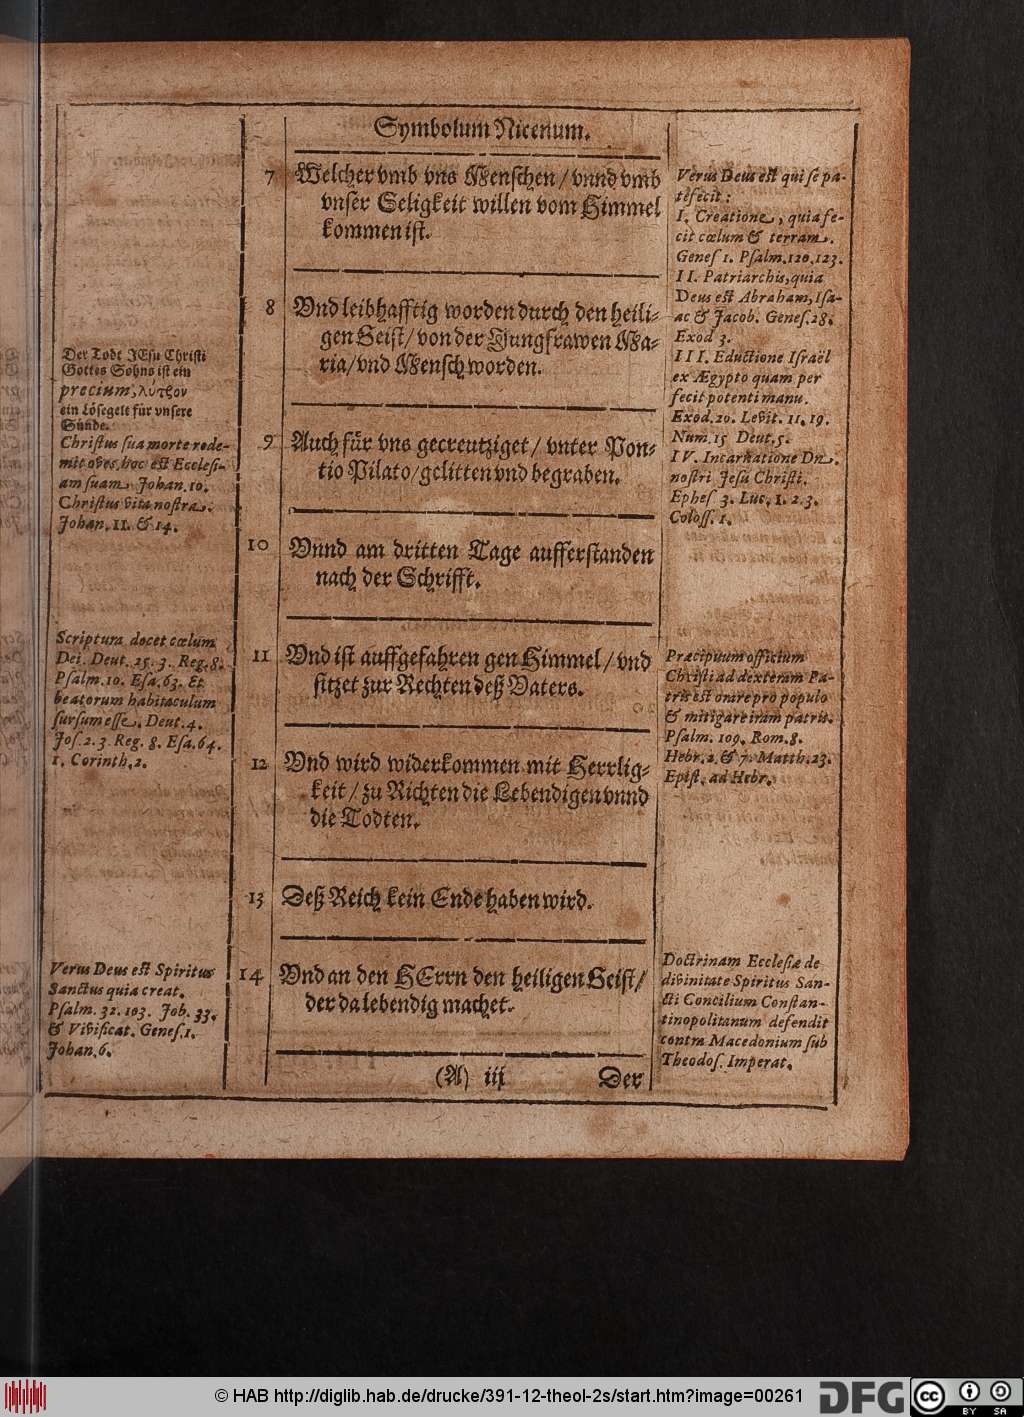 Symbolum Nicenum.
7 Welcher vmb vns Menschen / vnnd vmb
vnser Seligkeit willen vom Himmel
kommen ist.
8 Vnd leibhafftig worden durch den heili-
gen Geist / von der Jungfrawen Ma-
ria / vnd Mensch worden.
9 Auch für vns gecreutziget / vnter Pon-
tio Pilato / gelitten vnd begraben.
10 Vnnd am dritten Tage aufferstanden
nach der Schrifft.
11 Vnd ist auffgefahren gen Himmel / vnd
sitzet zur Rechten deß Vaters.
12 Vnd wird widerkommen mit Herrlig-
keit / zu Richten die Lebendigen vnnd
die Todten.
13 Deß Reich kein Ende haben wird.
14 Vnd an den HErrn den heiligen Geist /
der da lebendig machet.
(A) iij Der
Der Tode JEsu Christi
Gottes Sohns ist ein
precium, λύτρον
ein Lösegelt für vnsere
Sünde.
Christus sua morte rede-
mit oves, hoc est Ecclesi-
am suam, Johan. 10.
Christus vita nostra.
Johan. 11. & 14.
Scriptura docet cœlum
Dei. Deut. 25. 3. Reg. 8.
Psalm. 10. Esa. 63. Et
beatorum habitaculum
sursum esse. Deut. 4.
Jos. 2. 3. Reg. 8. Esa. 64.
1. Corinth. 2.
Verus Deus est Spiritus
Sanctus quia creat.
Psalm. 32. 103. Job. 33.
& Vivificat. Genes. 1.
Johan. 6.
Verus Deus est qui se pa-
tefecit:
I. Creatione, quia fe-
cit cœlum & terram.
Genes 1. Psalm. 120. 123.
II. Patriarchis, quia
Deus est Abraham, Isa-
ac & Jacob. Genes. 28.
Exod 3.
III. Eductione Israël
ex Ægypto quam per
fecit potenti manu.
Exod. 20. Levit. 11. 19.
Num. 15 Deut. 5.
IV. Incarnatione Dn.
nostri Jesu Christi.
Ephes 3. Luc. 1. 2. 3.
Coloss. 1.
Præcipuum officium
Christi ad dexteram Pa-
tris est orare pro populo
& mitigare iram patris.
Psalm. 109. Rom. 8.
Hebr. 2. & 7. Matth. 23.
Epist. ad Hebr.
Doctrinam Ecclesiæ de
divinitate Spiritus San-
cti Concilium Constan-
tinopolitanum defendit
contra Macedonium sub
Theodos. Imperat.
© HAB http://diglib.hab.de/drucke/391-12-theol-2s/start.htm?image=00261
DFG
cc BY SA